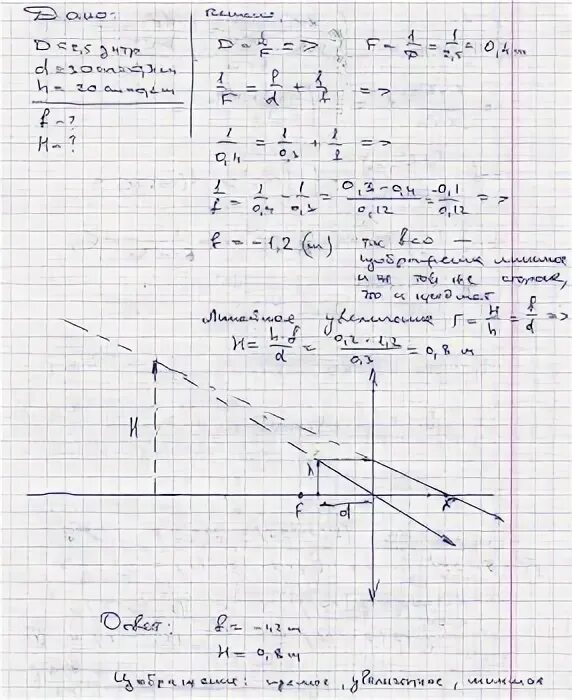 Дано:
D = 2,5 дптр
d = 30 см = 0,3 м
h = 20 см = 0,2 м
f - ?
H - ?
Решение:
D = 1/F => F = 1/D = 1/2,5 = 0,4 м
1/F = 1/d + 1/f =>
1/0,4 = 1/0,3 + 1/f =>
1/f = 1/0,4 - 1/0,3 = (0,3 - 0,4)/0,12 = -0,1/0,12 =>
f = -1,2 (м) т.к. f < 0 —
изображение мнимое
и на той же стороне,
что и предмет
Линейное увеличение Г = H/h = f/d =>
H = h·f/d = 0,2 · 1,2/0,3 = 0,8 м
H
h
F
d
F
Ответ: f = -1,2 м
H = 0,8 м
Изображение: прямое, увеличенное, мнимое